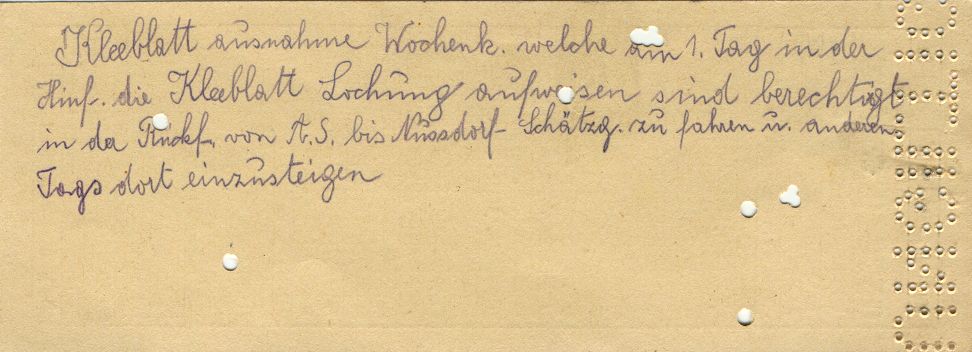 Kleeblatt ausnahme Wochenk. welche am 1. Tag in der
Hinf. die Kleeblatt Lochung aufweisen sind berechtigt
in der Rückf. von A.S. bis Nussdorf Schätzg. zu fahren u. anderen
Tags dort einzusteigen